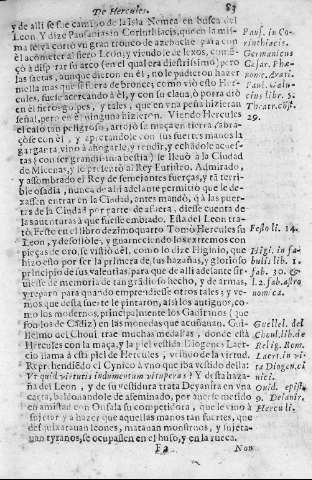 De Hercules. 83
y de allí se fue camino de la Isla Nemea en busca del
Leon. Y dize Pausanias in Corinthiacis, que en la mis-
ma selva cortò un gran tronco de azebuche para con
él acometer al fiero Leon, y viendole de lexos, comẽ-
çò à disparar su arco (en el qual era diestrissimo) pero
las saetas, aunque dieron en él, no le pudieron hazer
mella mas que si fuera de bronce; como viò esto Her-
cules, fuesse acercando à él, y con su clava, ò porra diò
en èl fieros golpes, y tales, que en vna peña hizieran
señal, pero en él ninguna hizieron. Viendo Hercules
el caso tan peligroso, arrojò la maça en tierra, y abra-
çòse con él, y apretandole con sus fuertes manos la
garganta vino à ahogarle, y rendir, y echádole acues-
tas (con ser grandissima bestia) se llevò à la Ciudad
de Micenas, y le presentò al Rey Euristeo. Admirado,
y assombrado el Rey de semejantes fuerças, y tã terri-
ble osadia, nunca de alli adelante permitiò que le de-
xassen entrar en la Ciudad, antes mandò, q̃ à las puer-
tas de la Ciudad por parte de afuera, diesse cuenta de
las auenturas à que fuesse embiado. Esta del Leon tra-
tò Festo en el libro dezimoquarto Tomò Hercules su
Leon, y desollòle, y guarneciendo los extremos con
pieças de oro, se vistiò dèl, como lo dize Higinio, que
hizo esto por ser la primera de sus hazañas, y glorioso
principio de sus valentias, para que de alli adelante sir-
uiesse de memoria de tan grãdioso hecho, y de armas,
y reparo para quando emprendiesse otros tales; y ve-
mos que desta suerte le pintaron, assi los antiguos, co-
mo los modernos, principalmente los Gaditanos (que
son los de Cádiz) en las monedas que acuñauan. Gui-
llelmo del Choul trae muchas medallas, donde està
Hercules con la maça, y la piel vestida Diogenes Laer-
cio llama à esta piel de Hercules, vestido de la virtud.
Reprehendiẽdo el Cynico à vno que iba vestido della:
Vt quid virtutis indumentum vituperas? Y desta haza-
ña del Leon, y de su vestidura trata Deyanira en vna
carta, baldonandole de afeminado, por auerse metido
en amistad con Onfala su competidora, que le vino à
sujetar y à hazer que aquellas manos tan fuertes, que
desquixarauan leones, matauan monstruos, y sujeta-
uan tyranos, se ocupassen en el huso, y en la rueca.
Fa Non
Paus. in Co-
rinthiacis.
Germanicus
Cesar. Phæ-
nome. Arati.
lius libr. 5.
29.
Festo li. 14.
Higi. in fa-
bulis lib. 1.
fab. 30. &
l. 2. fab. astro
nomica.
Guellel. del
Choul. lib. de
Relig. Rom.
Laert. in vi-
ta Diogen. ci
nici.
Ouid. epist.
9. Deianir.
Herculi.